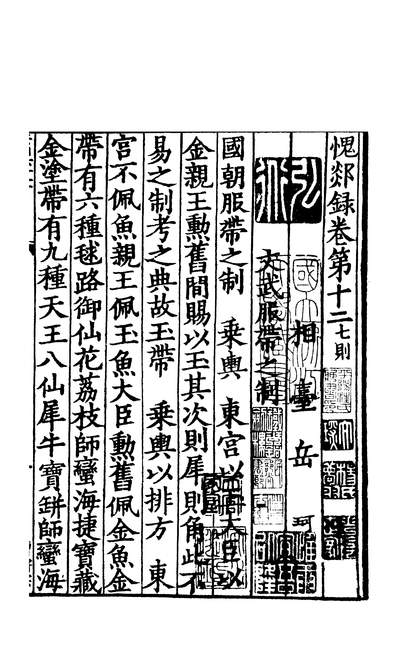 愧郯録卷第十二七則
相臺岳珂
文武服帶之制
國朝服帶之制 乗輿 東宮以玉大臣以
金親王勲舊間賜以玉其次則犀則角此不
易之制考之典故玉帶 乗輿以排方 東
宮不佩魚親王佩玉魚大臣勲舊佩金魚金
帶有六種毬路御仙花荔枝師蠻海捷寶藏
金塗帶有九種天王八仙犀牛寶缾師蠻海